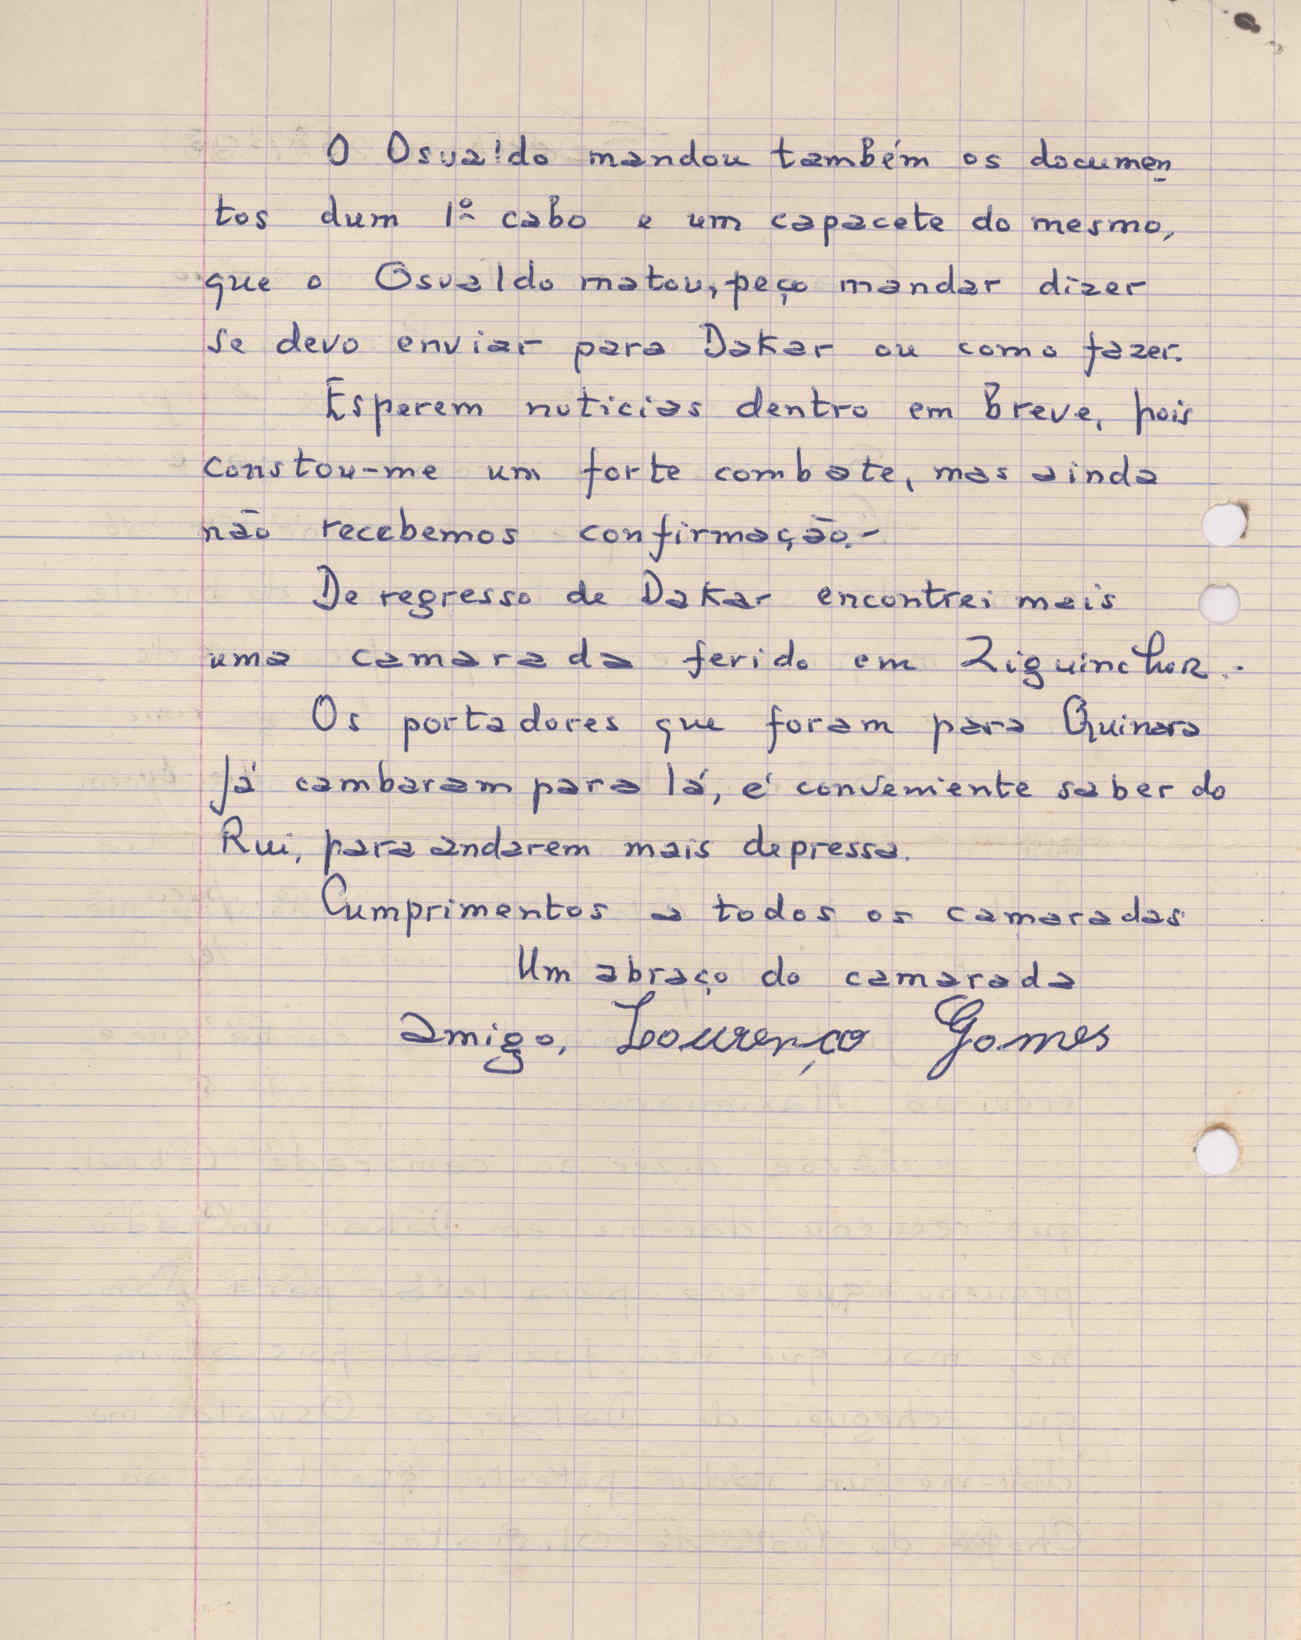 O Osvaldo mandou também os documen
tos dum 1º cabo e um capacete do mesmo,
que o Osvaldo matou, peço mandar dizer
se devo enviar para Dakar ou como fazer.
Esperem noticias dentro em breve, pois
constou-me um forte combate, mas ainda
não recebemos confirmação.-
De regresso de Dakar encontrei mais
uma camarada ferido em Ziguinchor.-
Os portadores que foram para Quinara
já cambaram para lá, é conveniente saber do
Rui, para andarem mais depressa.
Cumprimentos a todos os camaradas
Um abraço do camarada
amigo, Lourenço Gomes